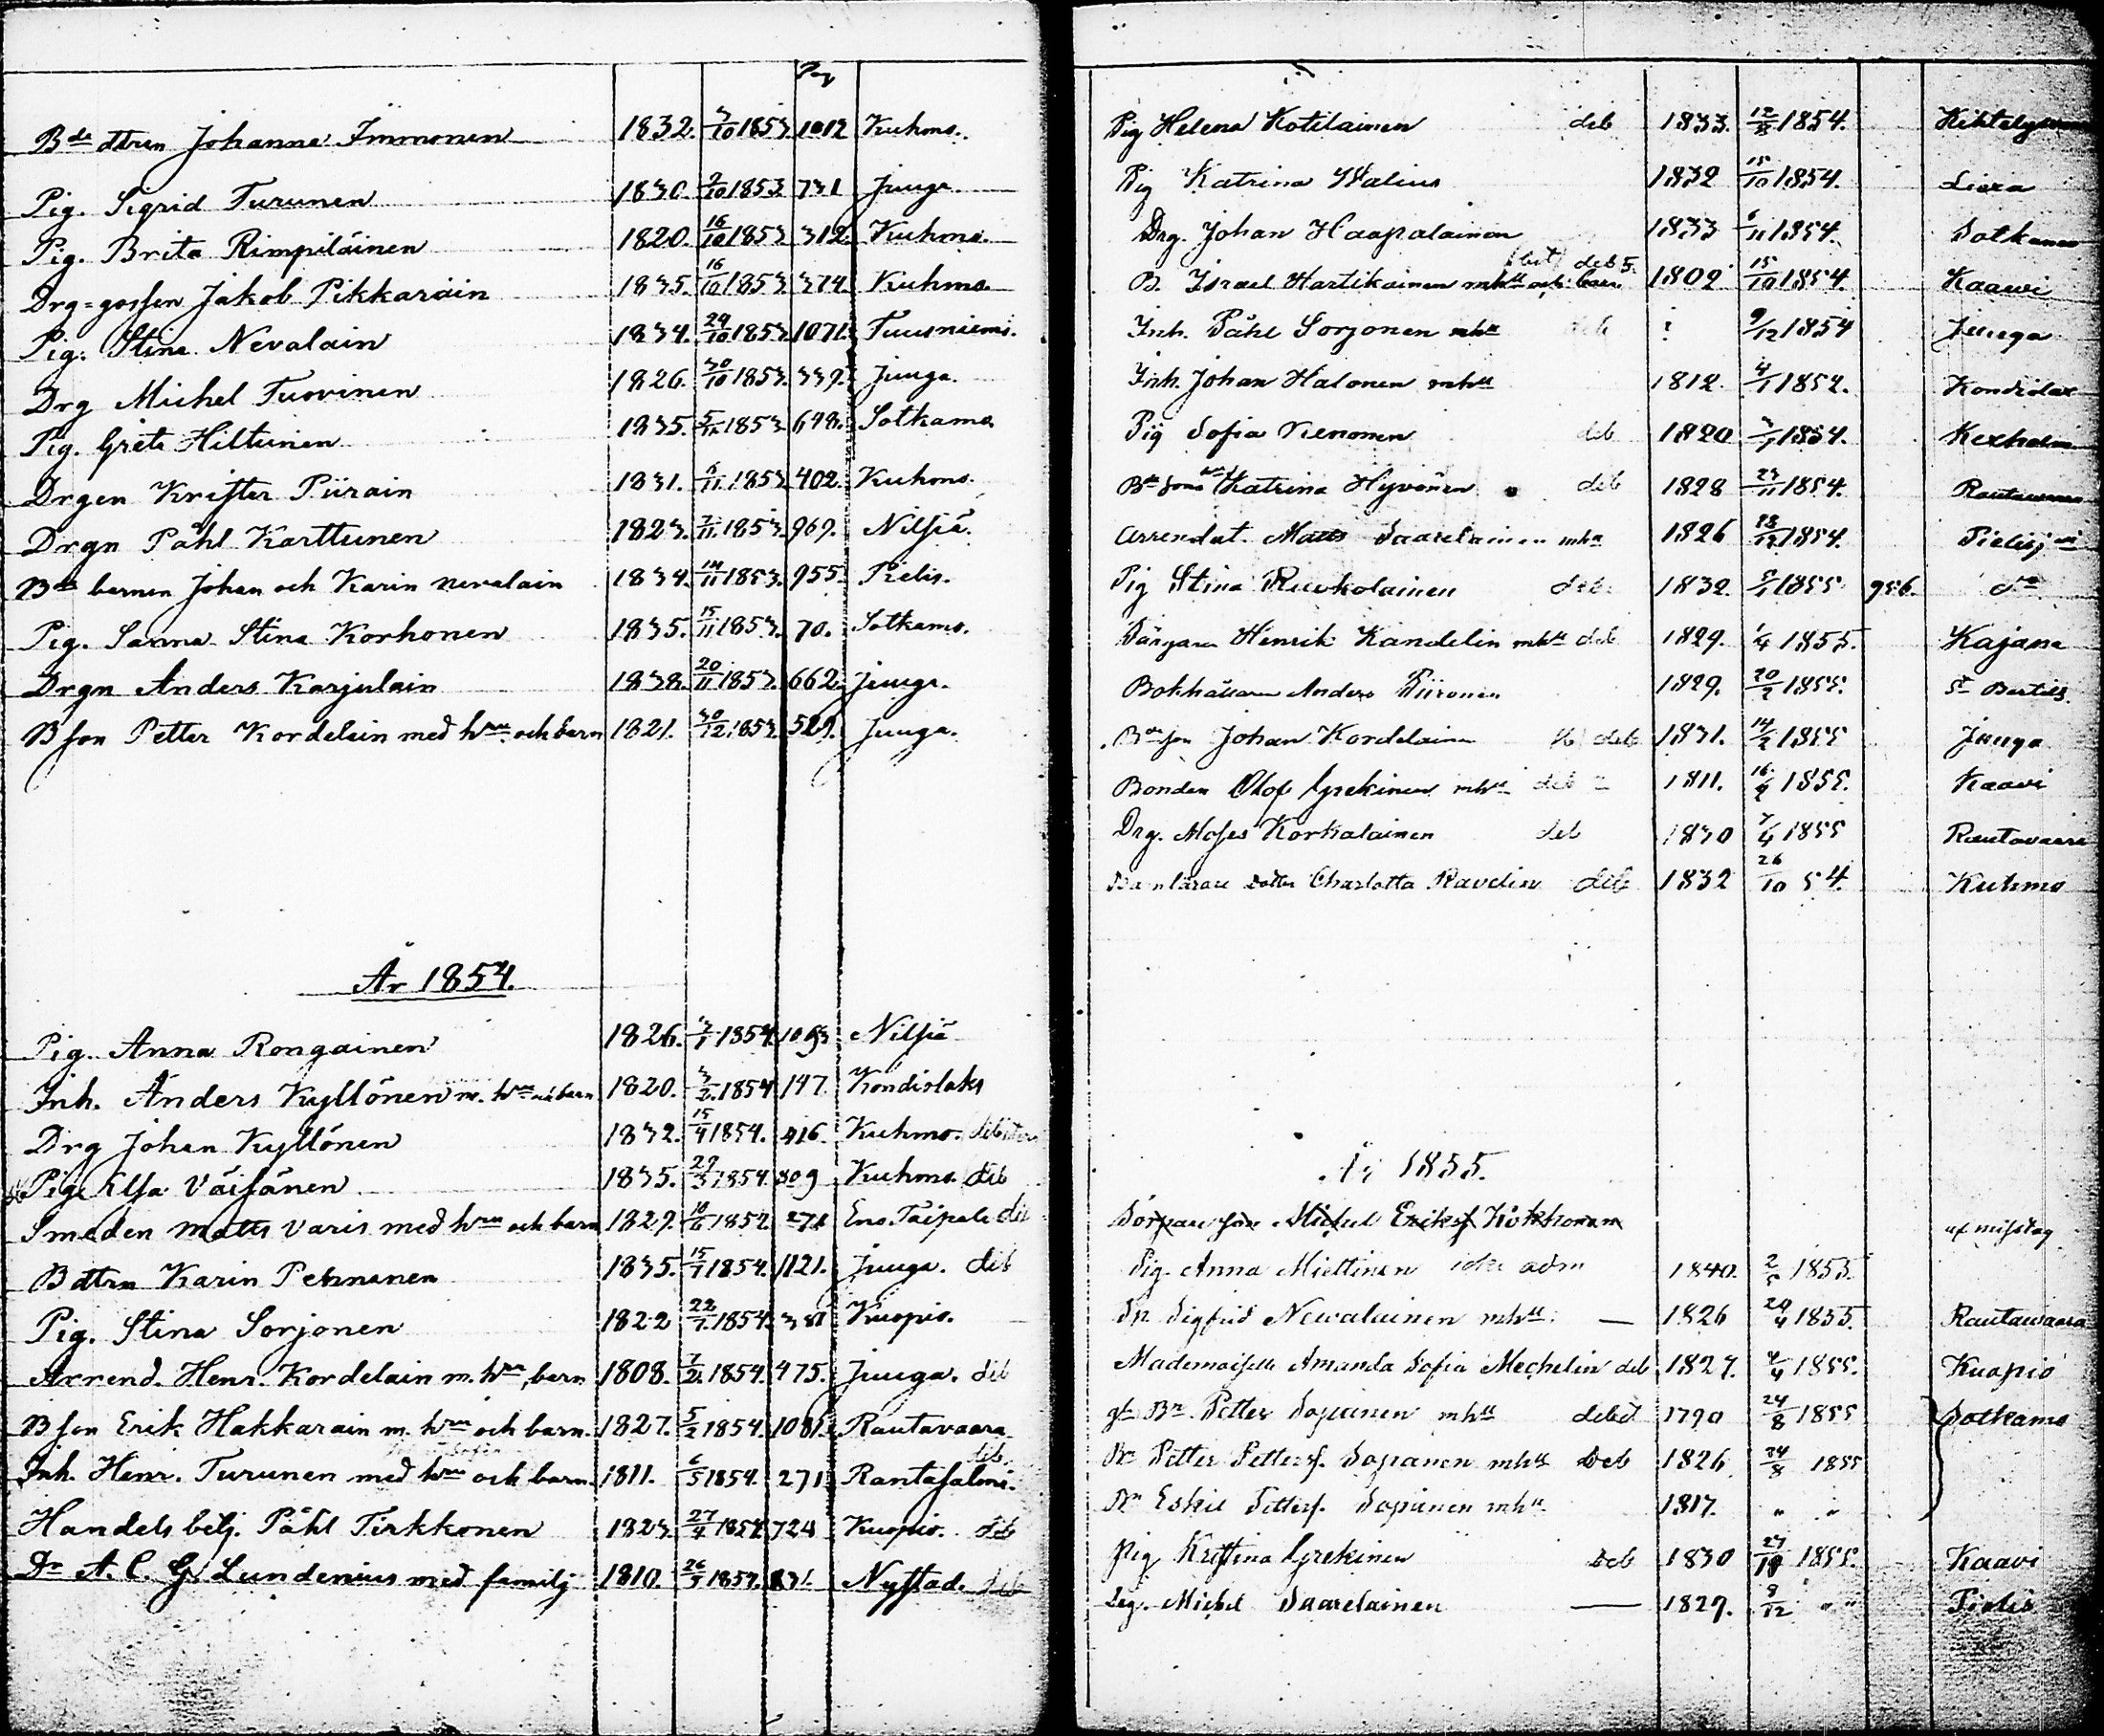 Pag
Bde dttren Johanna Immonen 1832. 3/10 1853. 1012 Kuhmo.
Pig. Sigrid Turunen 1830. 2/10 1853. 731 Juuga.
Pig. Brita Rimpiläinen 1820. 16/10 1853. 312. Kuhmo.
Drg=gossen Jakob Pikkarain 1835. 16/10 1853. 374. Kuhmo
Pig. Stina Nevalain 1834. 29/10 1853. 1071. Tuusniemi.
Drg Michel Tuovinen 1826. 30/10 1853. 339. Juuga.
Pig. Greta Hiltunen 1835. 1853. 648. Sotkamo
Drgen Krister Piirain 1831. 6/11 1853. 402. Kuhmo.
Drgn Påhl Karttunen 1823. 7/11 1853. 969. Nilsiä.
Bde barnen Johan och Karin nevalain 1834. 14/11 1853. 955. Pielis.
Pig. Sanna Stina Korhonen 1835. 15/11 1853. 70. Sotkamo.
Drgn Anders Karjulain 1838. 20/11 1853. 662. Juuga.
B son Petter Kordelain med hru och barn 1821. 30/12 1853. 529. Juuga.
År 1854.
Pig. Anna Rongainen 1826. 3/1 1854. 1093 Nilsiä
Inh. Anders Kyllönen m. hru och barn 1820. 3/2 1854 147. Kondislaks
Drg Johan Kyllönen 1832. 15/4 1854. 416. Kuhmo.
Pig. Elsa Väisänen 1835. 29/3 1854. 309 Kuhmo. deb
Smeden Matts Varis med hru och barn 1829. 18/6 1854 271 Eno Taipale deb
B dttrn Karin Pehnanen 1835. 15/7 1854. 1121. Juuga. deb
Pig. Stina Sorjonen 1822 22/7 1854. 381 Kuopio.
Arrend. Henr. Kordelain m. hru, barn 1808. 7/2 1854. 475. Juuga. deb
B son Erik Hakkarain m. hru och barn. 1827. 5/2 1854. 1081. Rautavaara
Inh. Henr. Turunen med hru och barn. 1811. 6/5 1854. 271 Rantasalmi. deb
Handels betj. Påhl Tirkkonen 1823. 27/4 1854 724 Kuopio. deb
Dr A. C. G. Lundenius med familj 1810. 26/3 1854. 831. Nystad. deb
Pig Helena Kotilainen deb 1833. 12/8 1854.
Pig Katrina Walius 1832 15/10 1854. Liexa
Drg. Johan Haapalainen 1833 6/11 1854. Sotkamo
B. Israel Hartikainen mhu och barn deb 5. 1802 15/10 1854. Kaawi
Inh. Påhl Sorjonen mhu deb ? 9/12 1854 Juuga
Inh. Johan Halonen mhu 1812. 4/1 1854. Kondislax
Pig Sofia deb 1820 1854. Kexholm
Bde sons Katrina Hyvönen deb 1828 23/11 1854.
Arrendat. Matts Saarelainen mhu 1826 1854.
Pig Stina Ruokolainen deb. 1832. 1855 956. do
Färgaren Henrik Kandelin mhu deb 1829. 1/4 1855. Kajana
Bokhållaren Anders Piironen 1829. 20/2 1855. St Bertils
Bde son Johan Kordelain deb 1831. 14/2 1855 Juuga
Bonden Olof Grekinen mhu deb 1811. 16/4 1855. Kaavi
Drg. Moses Korkalainen deb 1830 7/4 1855 Rautavaara
Barnlärare dotter Charlotta Ravelin deb 1832 26/10 54. Kuhmo
År 1855.
Sorjan son Michel Eriks. Kokkonen af misstag
Pig. Anna Miettinen icke adm 1840. 1855.
Dr Sigfrid Newalainen mhu. — 1826 20/4 1855. Rautawaara
Mademoiselle Amanda Sofia Mechelin deb 1827. 4/4 1855. Kuopio
gl Bn Petter Sopanen mhu debet 1790 24/8 1855 Sotkamo
Bn Petter Petters. Sopanen mhu deb 1826 24/8 1855
Bn Eskil Petters. Sopanen mhu 1817. " "
Pig Kristina Grekinen deb 1830 27/10 1855. Kaavi
Drg. Michel Saarelainen — 1829. 9/12 " " Pielis